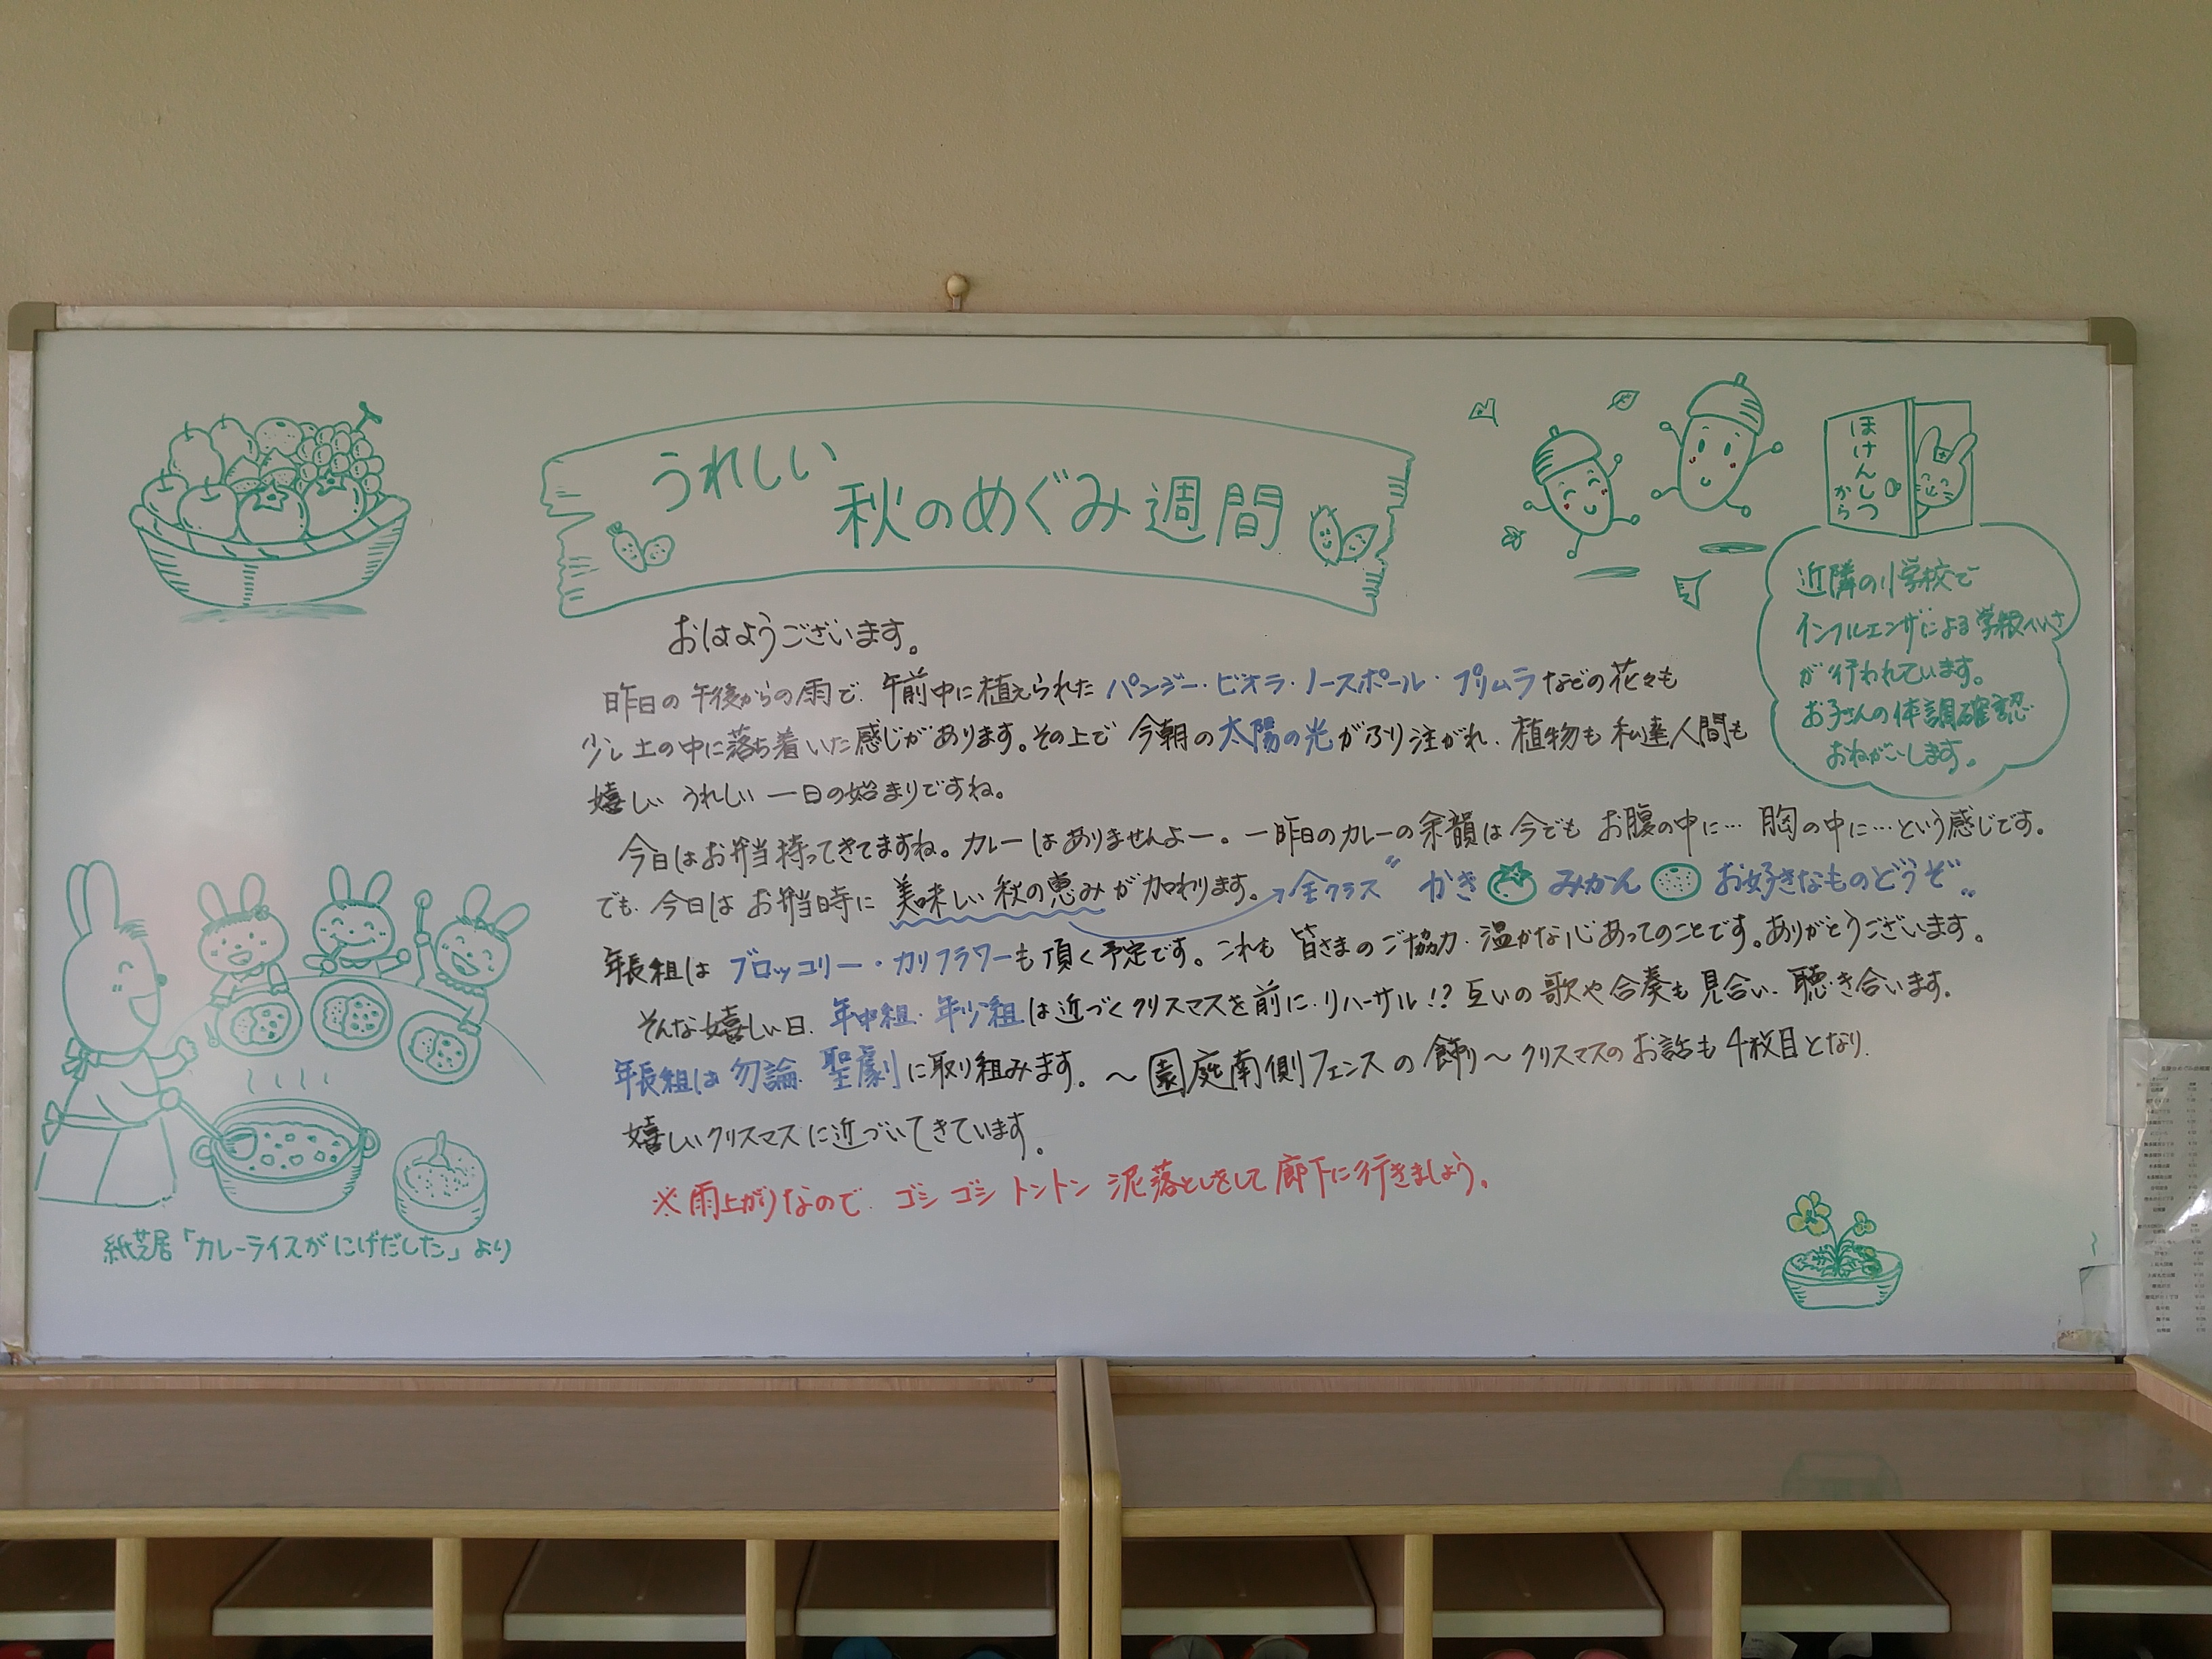 うれしい
秋のめぐみ週間
ほけんしつ
から
近隣の小学校で
インフルエンザによる学級へいさ
が行われています。
お子さんの体調確認
おねがいします。
おはようございます。
昨日の午後からの雨で、午前中に植えられたパンジー・ビオラ・ノースポール・プリムラなどの花々も
少し土の中に落ち着いた感じがあります。その上で今朝の太陽の光がふり注がれ、植物も私達人間も
嬉しい うれしい 一日の始まりですね。
今日はお弁当持ってきてますね。カレーはありませんよー。一昨日のカレーの余韻は今でも お腹の中に… 胸の中に…という感じです。
でも、今日はお弁当時に美味しい秋の恵みが加わります。→全クラス〝かき みかん お好きなものどうぞ〟
年長組はブロッコリー・カリフラワーも頂く予定です。これも皆さまのご協力・温かな心あってのことです。ありがとうございます。
そんな嬉しい日、年中組・年少組は近づくクリスマスを前に、リハーサル!?互いの歌や合奏も見合い、聴き合います。
年長組は勿論、聖劇に取り組みます。〜園庭南側フェンスの飾り〜クリスマスのお話も4枚目となり、
嬉しいクリスマスに近づいてきています。
※雨上がりなので、ゴシゴシトントン 泥落としをして廊下に行きましょう。
紙芝居「カレーライスがにげだした」より